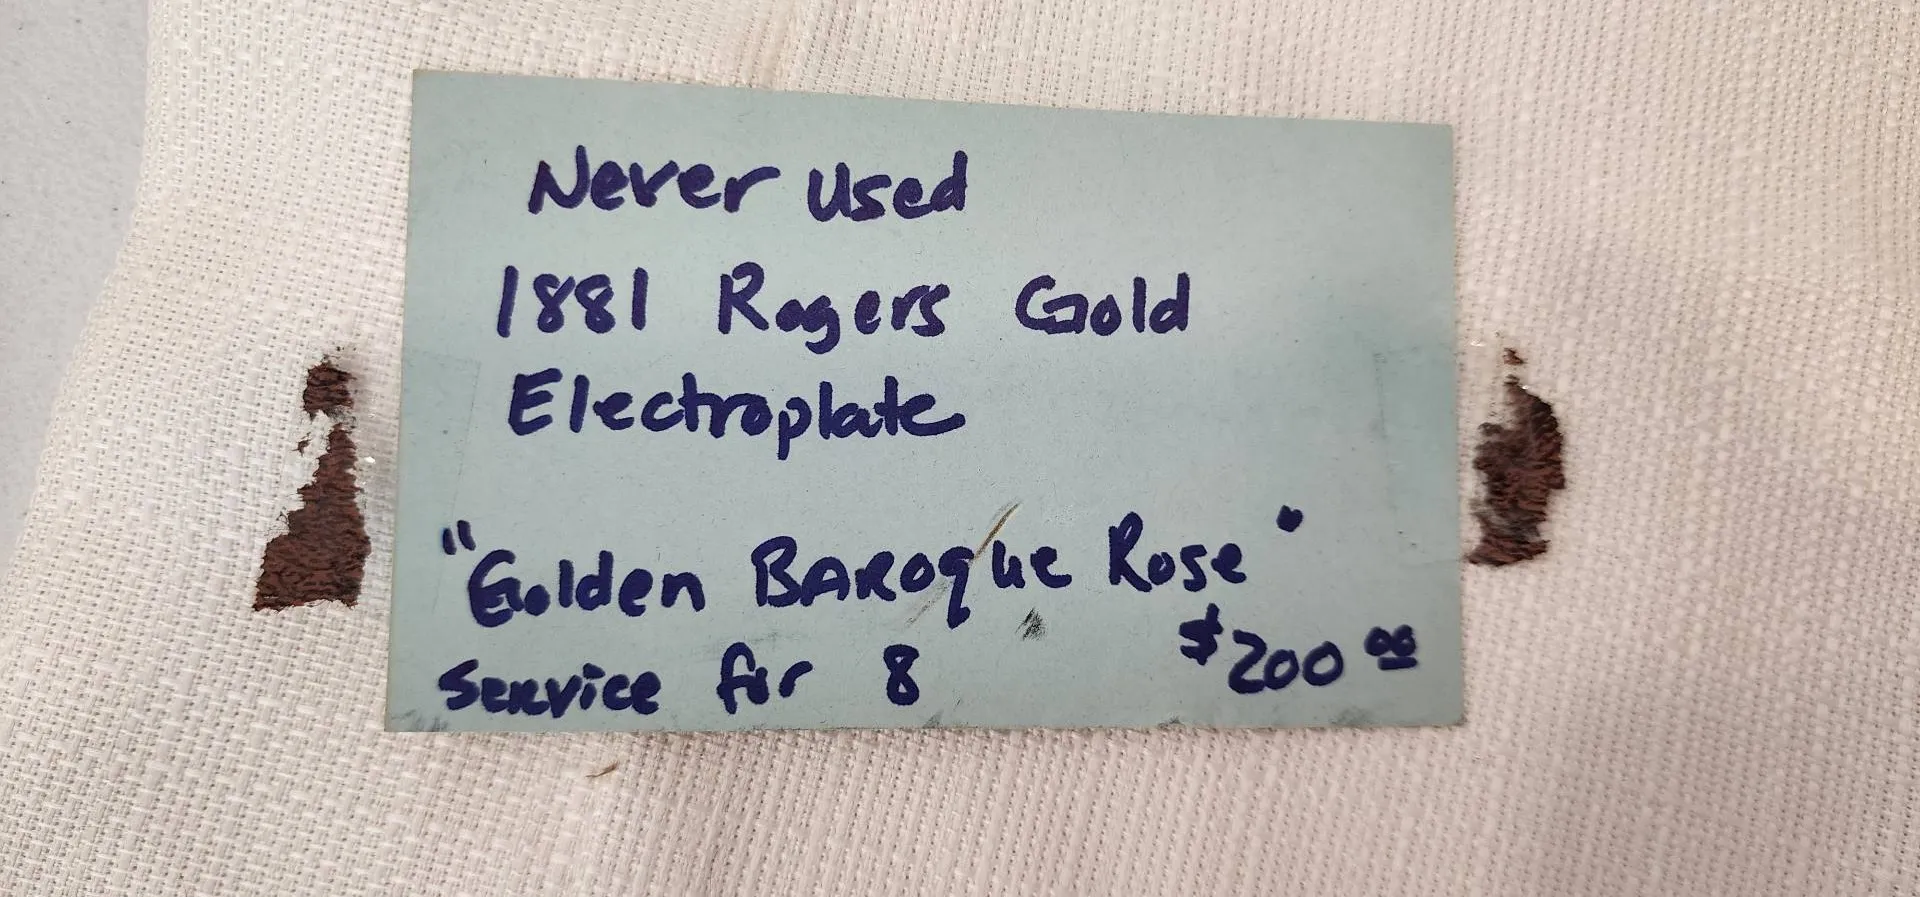 Never Used
1881 Rogers Gold
Electroplate
"Golden BAROque Rose"
Service for 8 $200 00